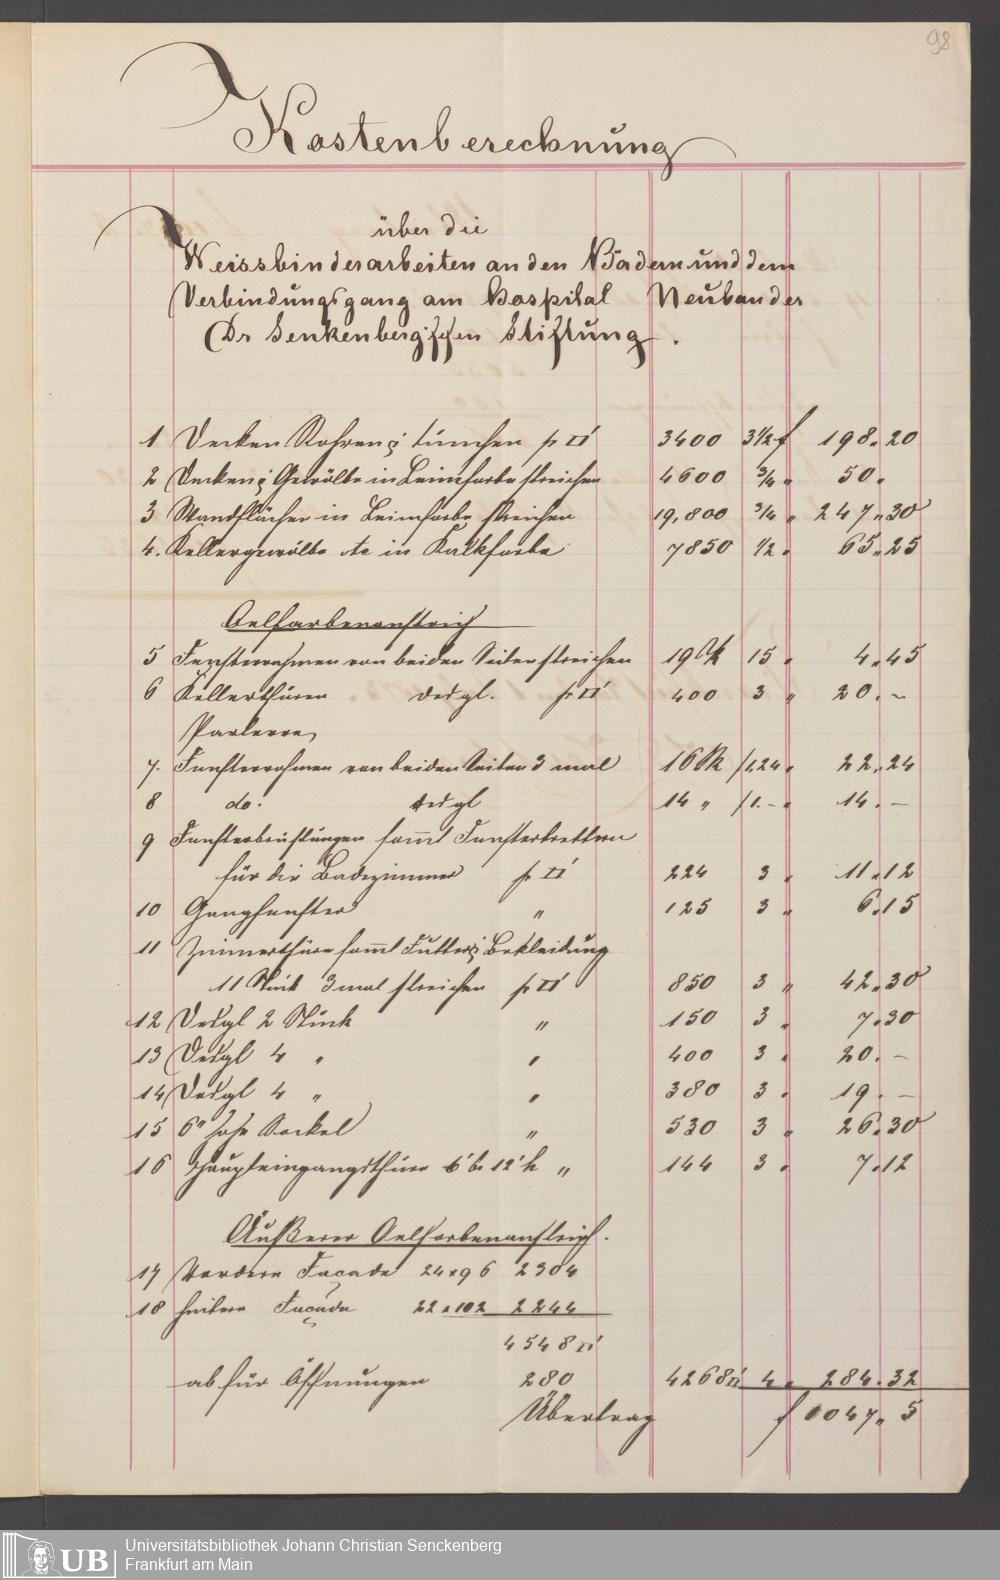 98
Kostenberechnung
über die
Weissbinderarbeiten an den Bädern und dem
Verbindungsgang am Hospital Neubau der
Dr Senkenberg'schen Stiftung.
1 Decken Rohren & tünchen pr □' 3400 3½ f 198. 20
2 Decken & Gewölbe in Leimfarbe streichen 4600 ¾ " 50.
3 Wandflächen in Leimfarbe streichen 19,800 ¾ " 247 " 30
4. Kellergewölbe etc in Kalkfarbe 7850 ½ " 65 " 25
Oelfarbenanstrich
5 Fensterrahmen von beiden Seiten streichen 19 Stk 15 " 4. 45
6 Kellerthüren desgl. pr □' 400 3 " 20. –
Parterre
7. Fensterrahmen von beiden Seiten 3 mal 16 Stk /1.24 " 22. 24
8 do. desgl 14 " /1. – " 14. –
9 Fensterbrüstungen sammt Fensterbrettern
für die Badezimmer pr □' 224 3 " 11 " 12
10 Gangfenster " 125 3 " 6. 15
11 Zimmerthüren sammt Futter & Bekleidung
11 Stück 3 mal streichen pr □' 850 3 " 42 " 30
12 Desgl 2 Stück " 150 3 " 7. 30
13 Desgl 4 " " 400 3 " 20. –
14 Desgl 4 " " 380 3 " 19. –
15 6" hohe Sockel " 530 3 " 26. 30
16 Haupteingangsthüre 6' br 12' h " 144 3 " 7. 12
Äußerer Oelfarbenanstrich.
17 Vordere Façade 24 x 96 2304
18 hintere Façade 22 x 102 2244
4548 □'
ab für Öffnungen 280 4268 □' 4 " 284. 32
Übertrag f 1047 " 5
UB Universitätsbibliothek Johann Christian Senckenberg
Frankfurt am Main